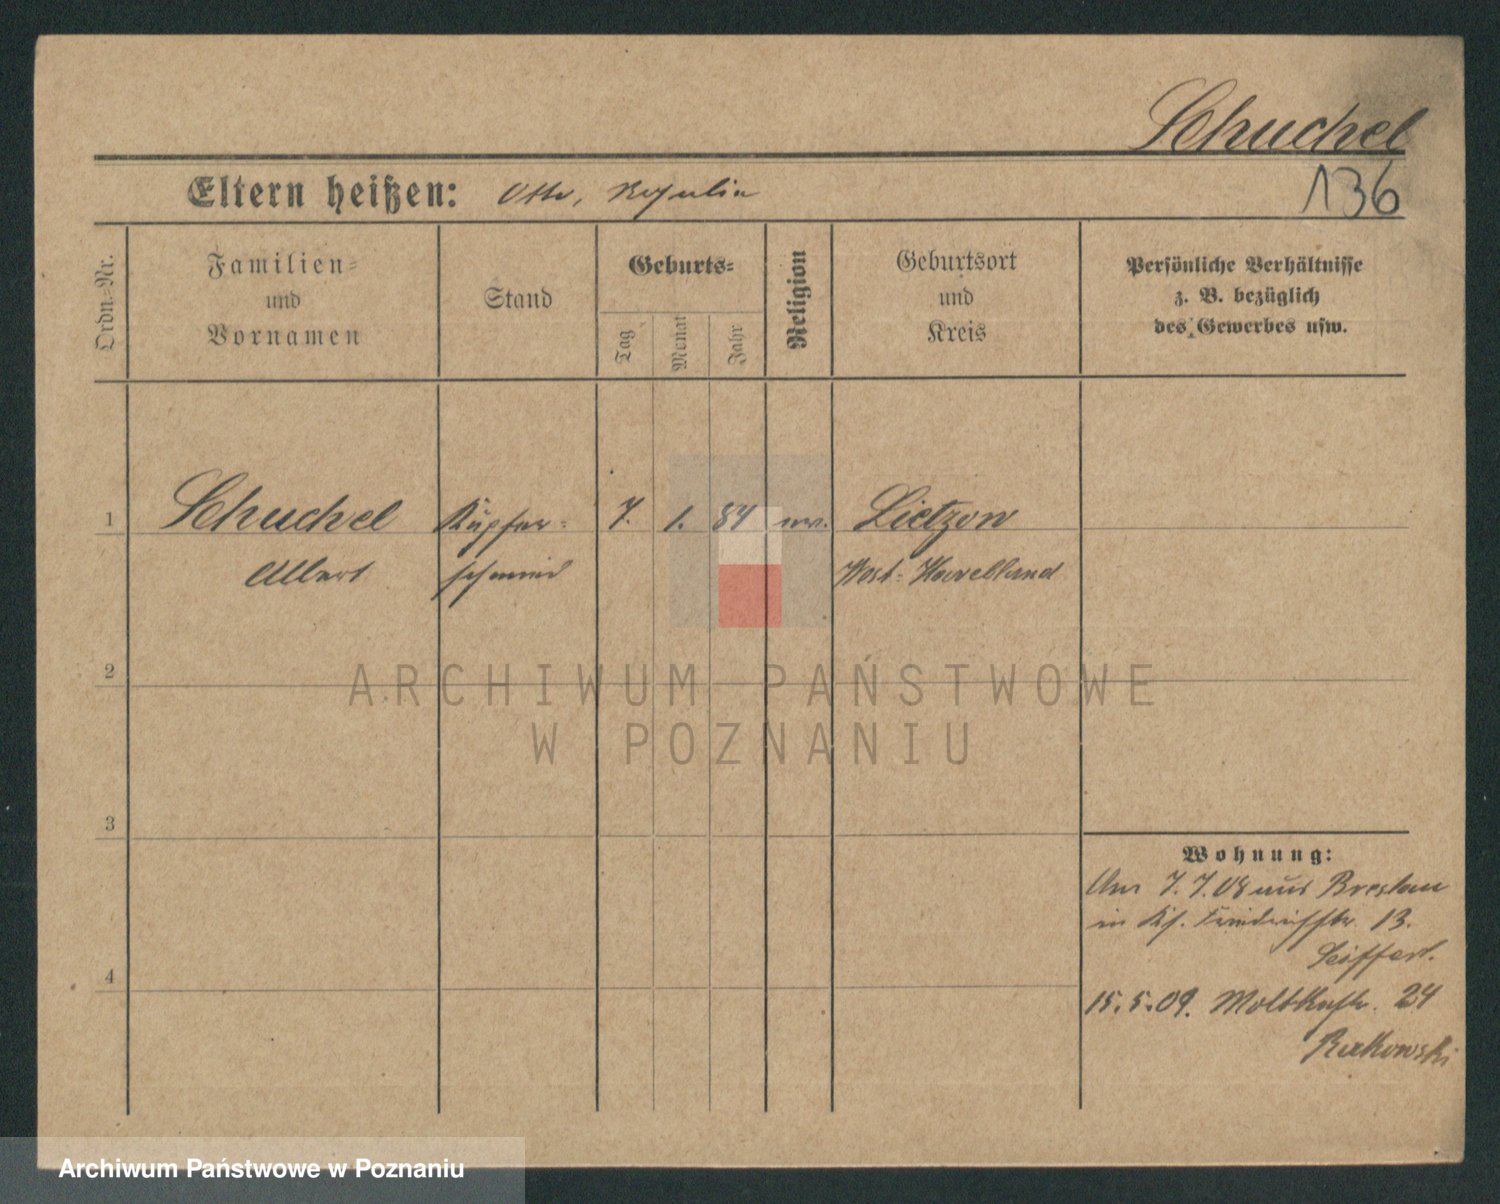 Schuchel
136
Eltern heißen: Otto,
Ordn.-Nr.
Familien-
und
Vornamen
Stand
Geburts-
Tag
Monat
Jahr
Religion
Geburtsort
und
Kreis
Persönliche Verhältnisse
z. B. bezüglich
des Gewerbes usw.
1
Schuchel Kupfer- 7. 1. 84 ev. Lietzow
Albert schmied West-Havelland
2
ARCHIWUM PAŃSTWOWE
W POZNANIU
3
Wohnung:
7.7.08 aus Breslau
in Friedrichstr. 13.
Seiffert.
4
15.5.09. Moltkestr. 24
Rutkowski
Archiwum Państwowe w Poznaniu